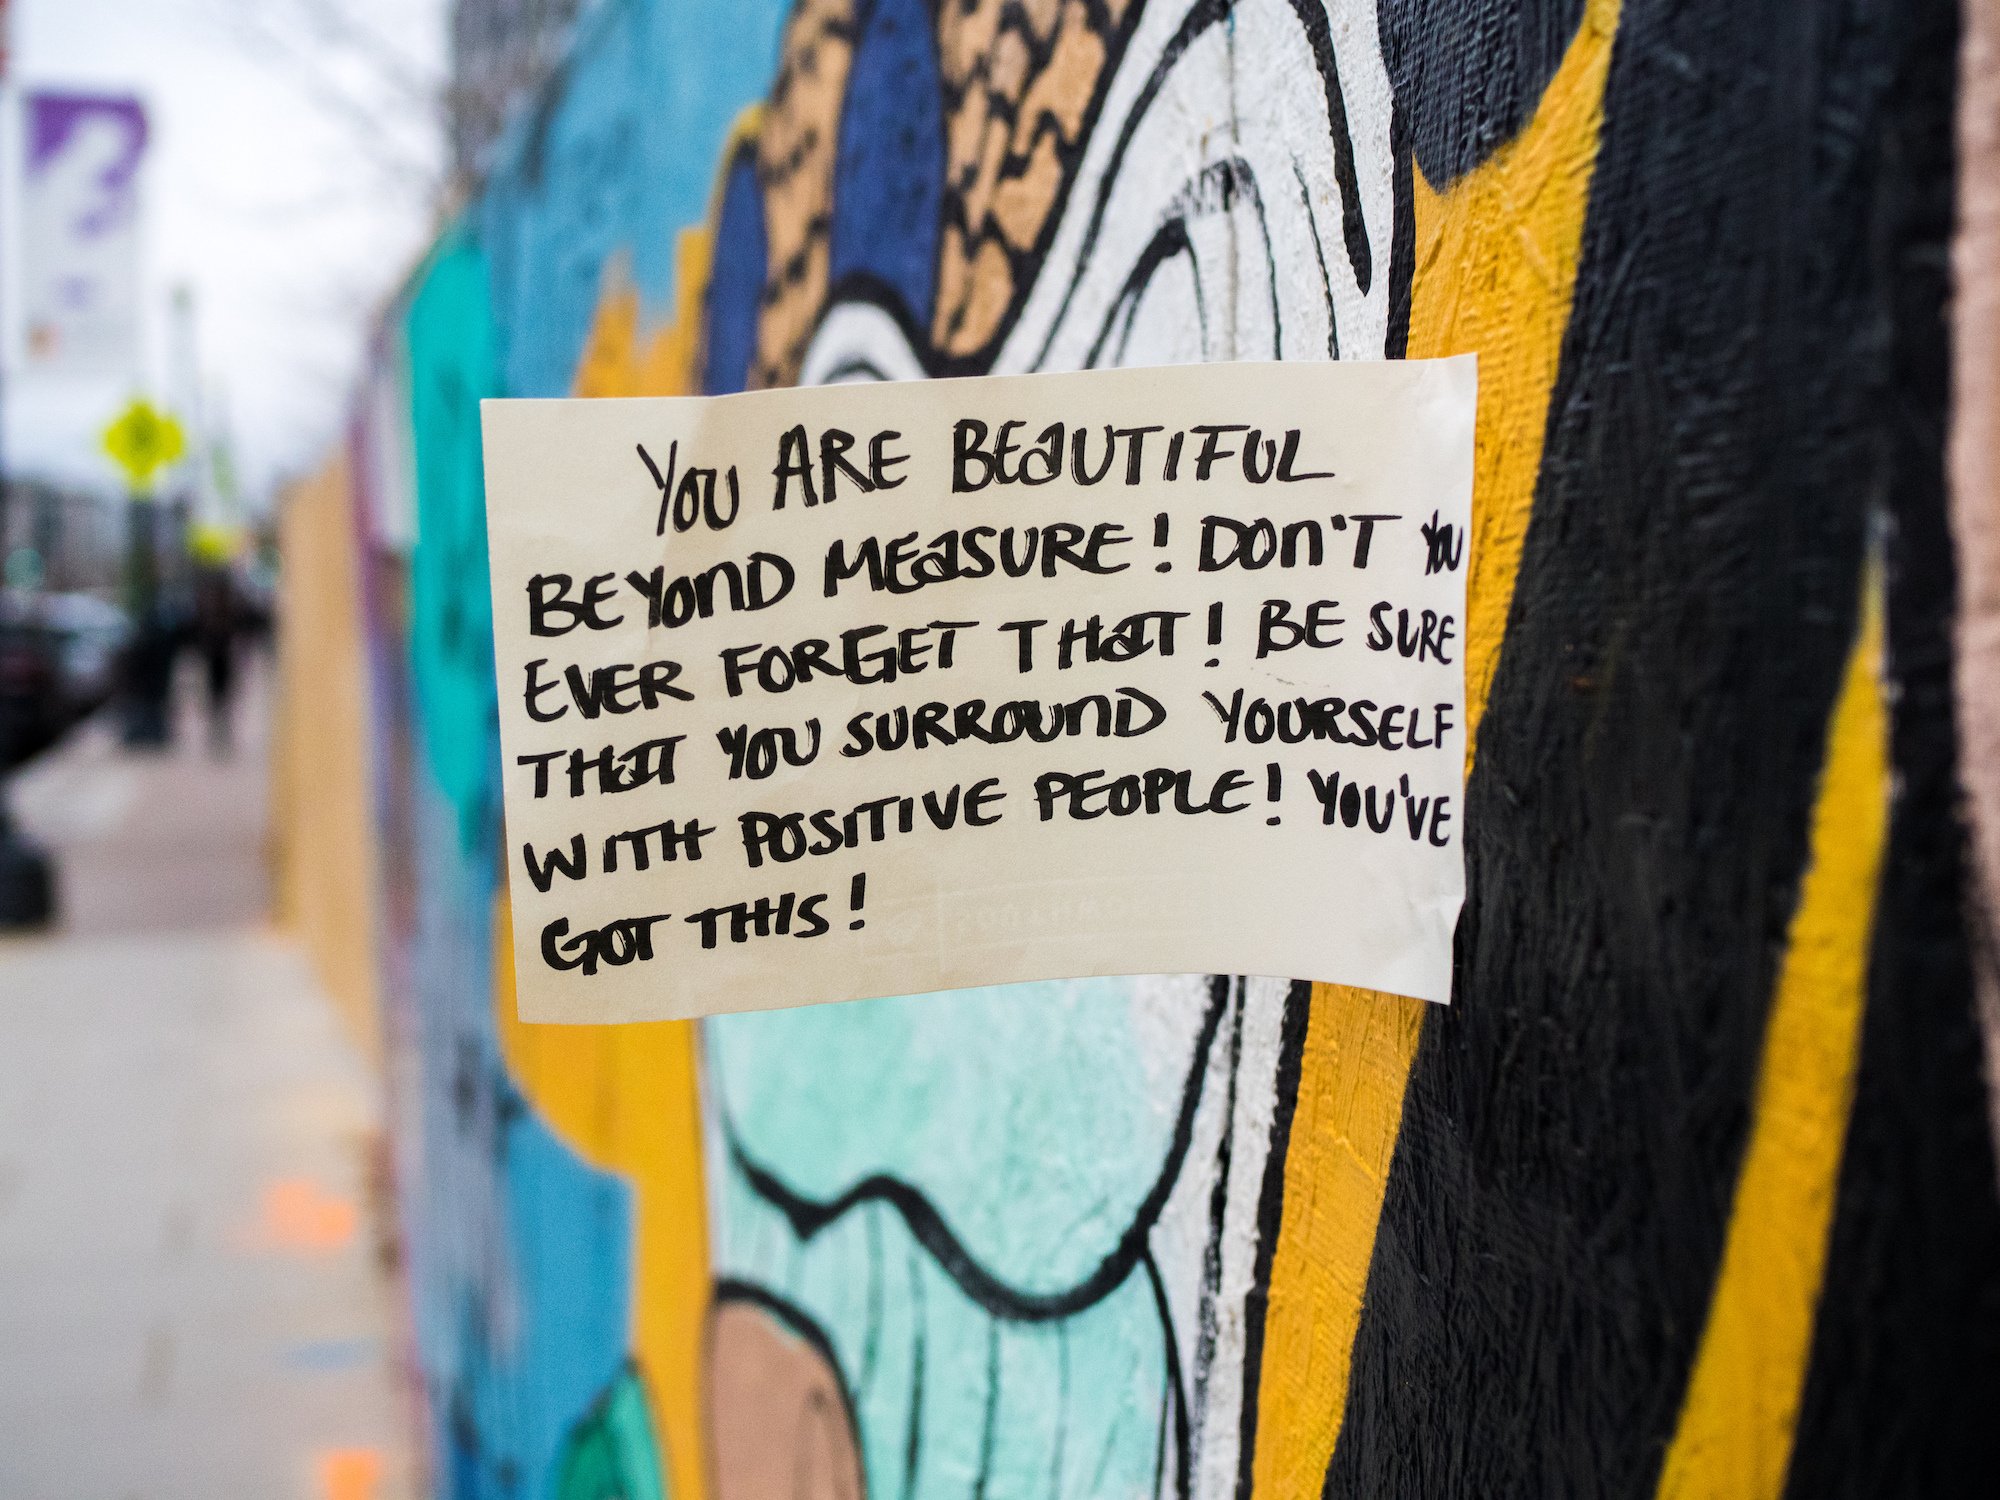 YOU ARE BEAUTIFUL
BEYOND MEASURE! DON'T YOU
EVER FORGET THAT! BE SURE
THAT YOU SURROUND YOURSELF
WITH POSITIVE PEOPLE! YOU'VE
GOT THIS!